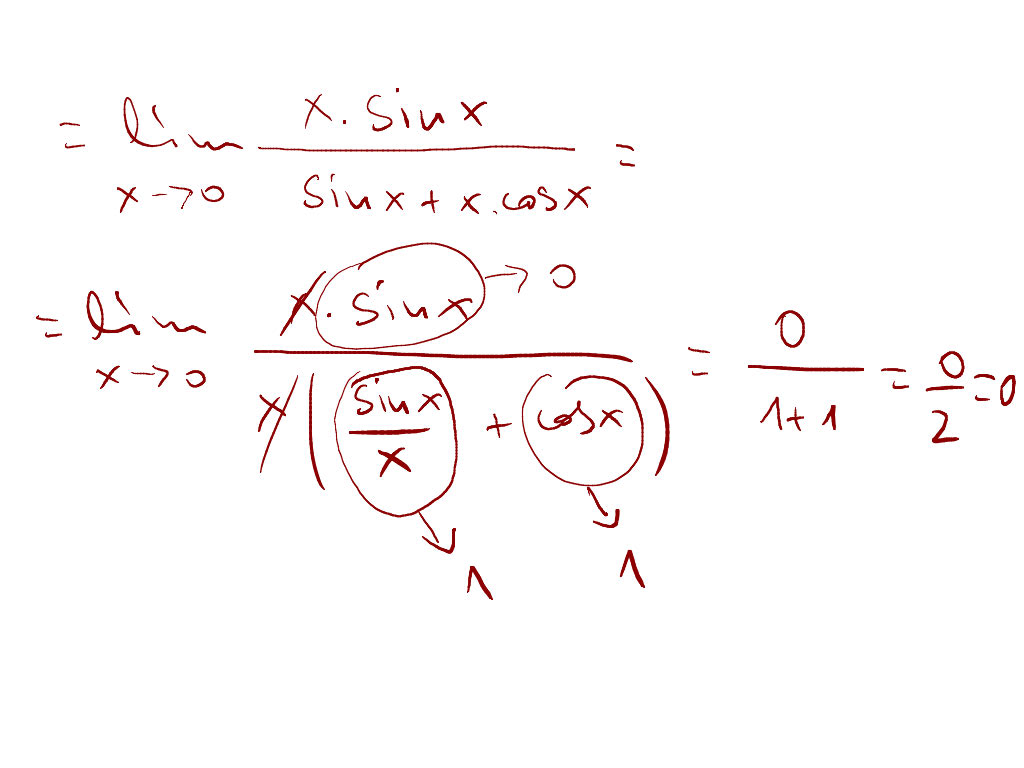 = lim x→0 (x . sinx)/(sinx + x.cosx) =
= lim x→0 (x . sinx)/(x(sinx/x + cosx)) = 0/(1+1) = 0/2 = 0
→ 0
1
1